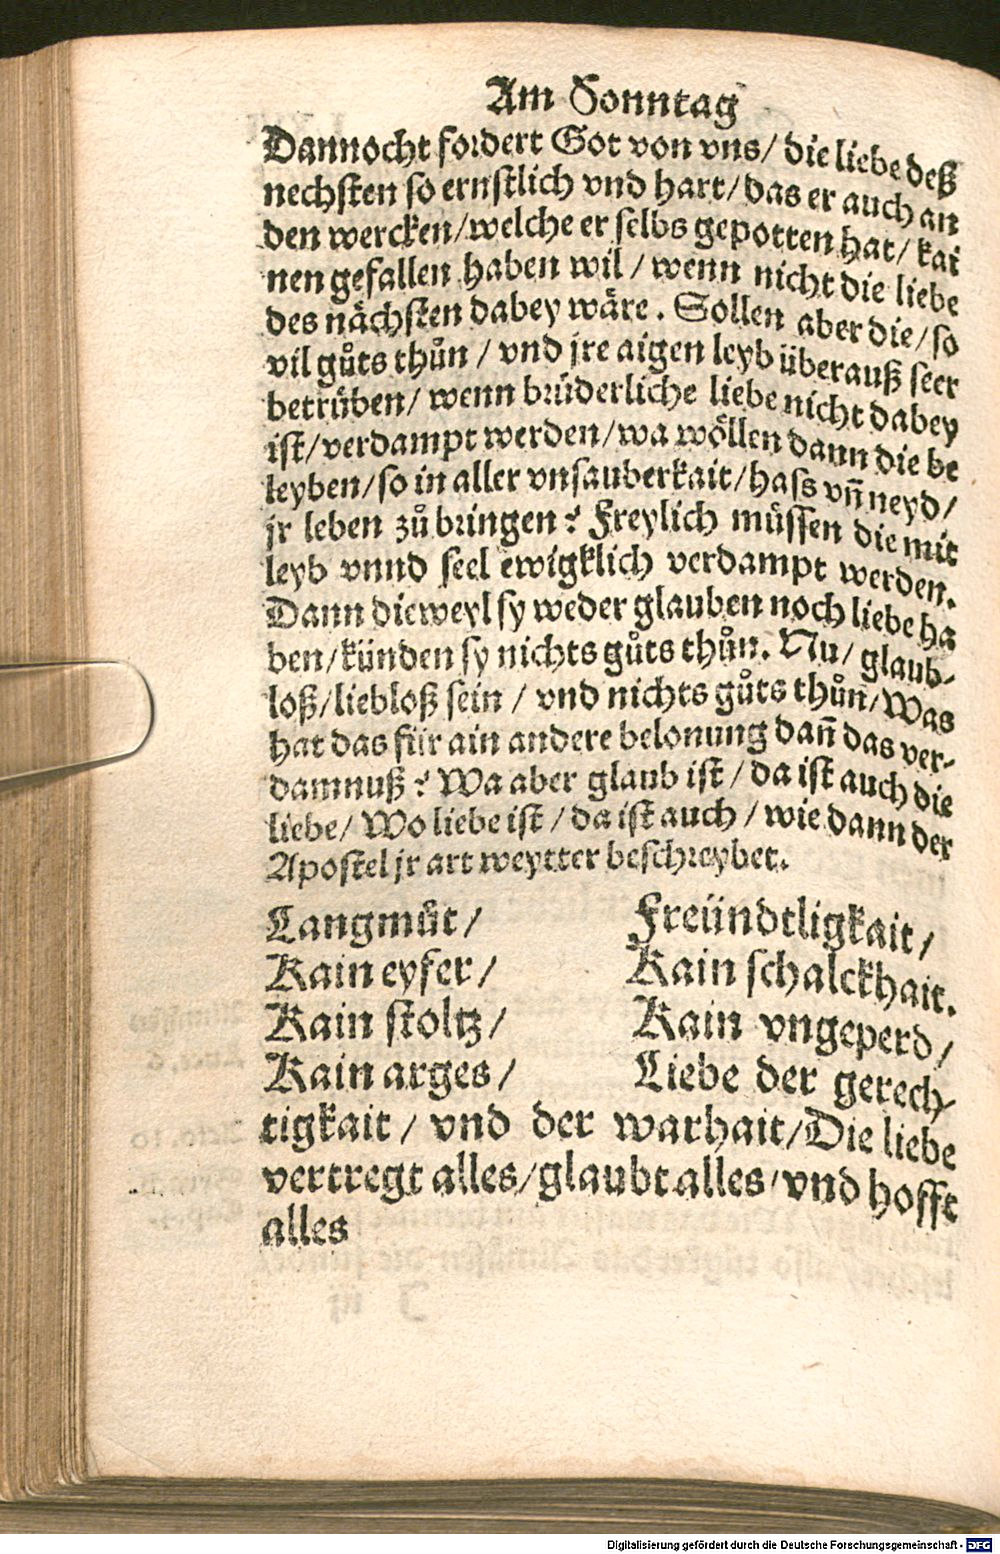 Am Sonntag
Dannocht fordert Got von vns/ die liebe deß
nechsten so ernstlich vnd hart/ das er auch an
den wercken/welche er selbs gepotten hat/ kai
nen gefallen haben wil / wenn nicht die liebe
des nächsten dabey wäre. Sollen aber die/ so
vil gůts thůn / vnd jre aigen leyb überauß seer
betrüben/ wenn brüderliche liebe nicht dabey
ist/verdampt werden/wa wöllen dann die be
leyben/so in aller vnsauberkait/hass vñ neyd/
jr leben zů bringen? Freylich müssen die mit
leyb vnnd seel ewigklich verdampt werden.
Dann dieweyl sy weder glauben noch liebe ha
ben/künden sy nichts gůts thůn. Nu/ glaub-
loß/liebloß sein / vnd nichts gůts thůn/Was
hat das für ain andere belonung dañ das ver-
damnuß? Wa aber glaub ist / da ist auch die
liebe/ Wo liebe ist / da ist auch / wie dann der
Apostel jr art weytter beschreybet.
Langmůt /
Freündtligkait /
Kain eyfer /
Kain schalckhait.
Kain stoltz /
Kain vngeperd /
Kain arges /
Liebe der gerech-
tigkait / vnd der warhait/Die liebe
vertregt alles/glaubt alles/vnd hofft
alles
Digitalisierung gefördert durch die Deutsche Forschungsgemeinschaft - DFG